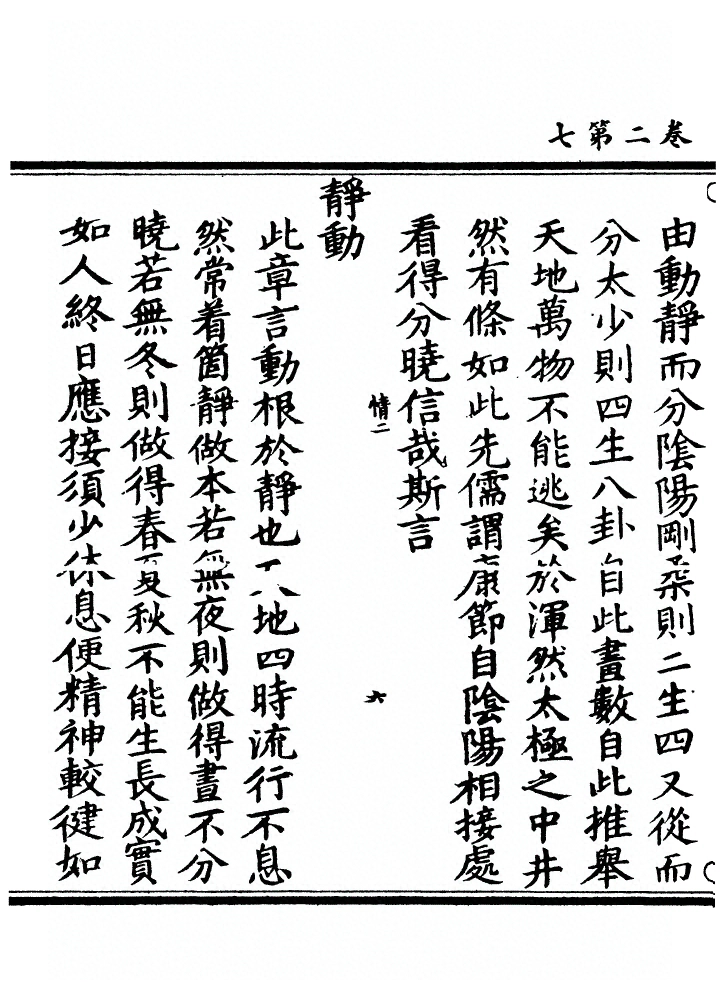 七第二卷
由動靜而分陰陽剛柔則二生四又從而
分太少則四生八卦自此畫數自此推舉
天地萬物不能逃矣於渾然太極之中井
然有條如此先儒謂康節自陰陽相接處
看得分曉信哉斯言
情二
六
靜動
此章言動根於靜也天地四時流行不息
然常着箇靜做本若無夜則做得晝不分
曉若無冬則做得春夏秋不能生長成實
如人終日應接須少休息便精神較健如